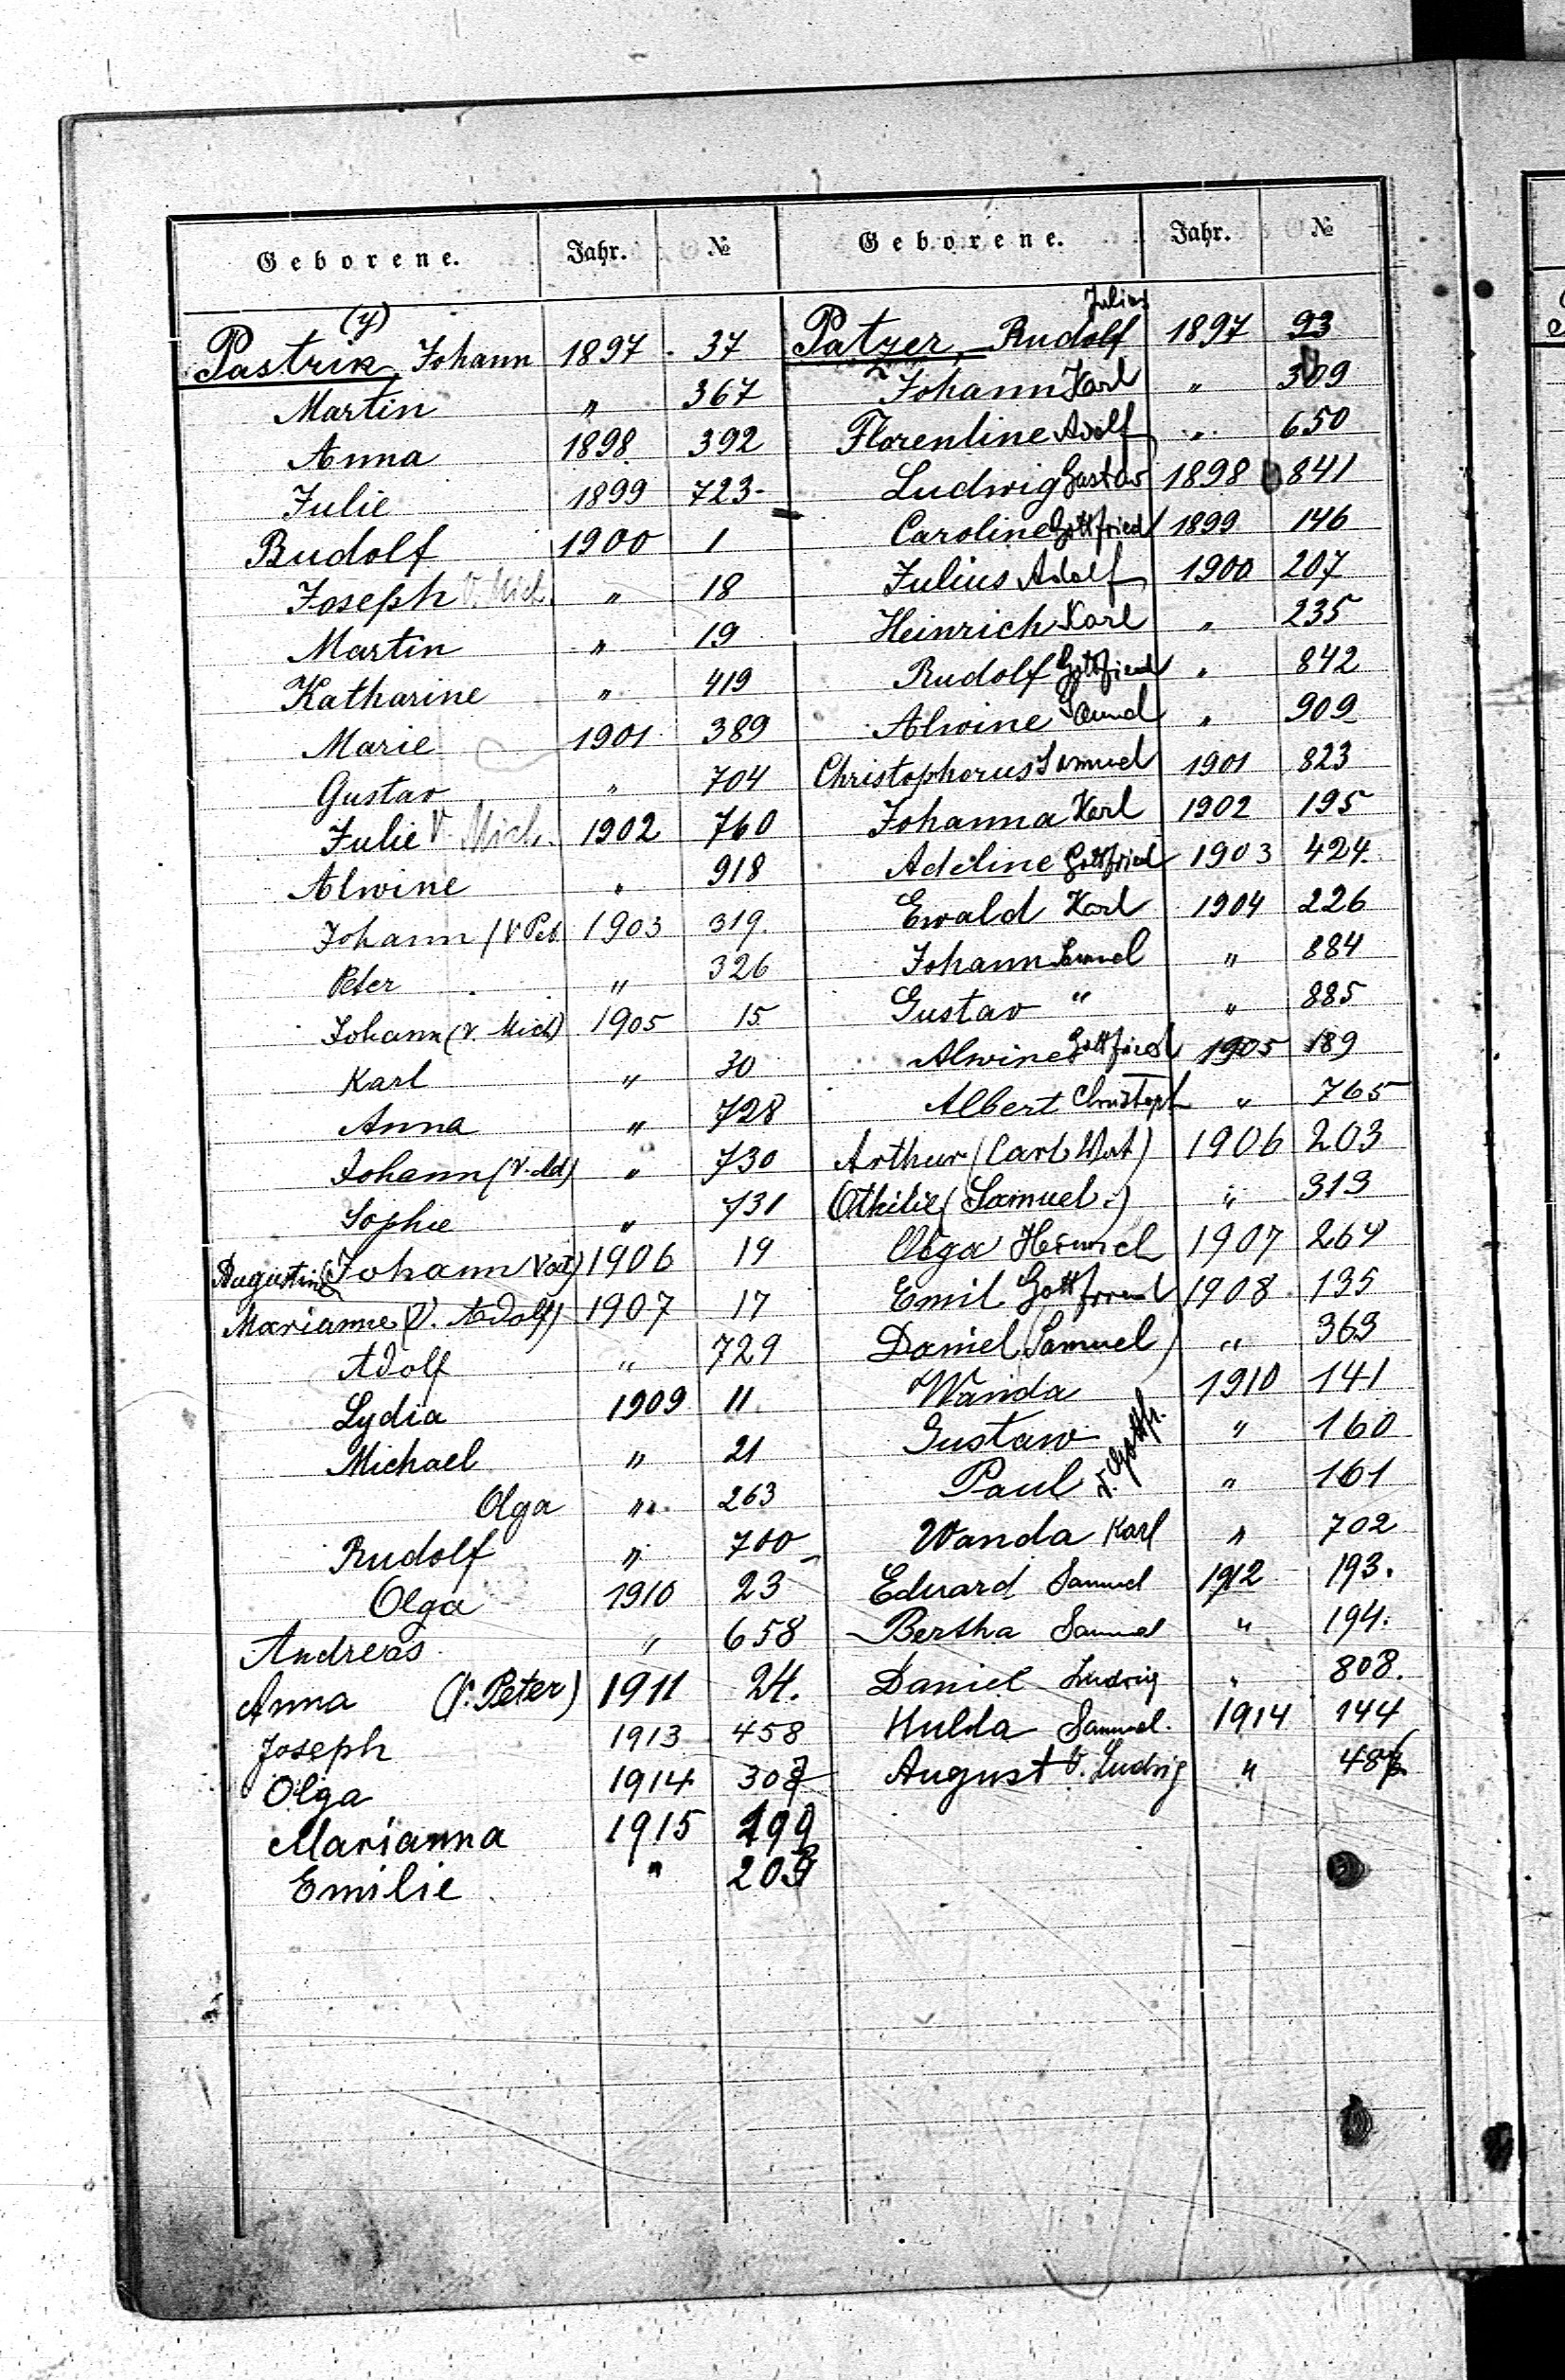 Geborene. Jahr. №
(y)
Pastrik, Johann 1897 37
Martin " 367
Anna 1898 392
Julie 1899 723
Rudolf 1900 1
Joseph V. Mich. " 18
Martin " 19
Katharine " 419
Marie 1901 389
Gustav " 704
Julie V. Mich. 1902 760
Alwine " 918
Johann (V Pet. 1903 319.
Peter " 326
Johann (V. Mich) 1905 15
Karl " 30
Anna " 728
Johann (V. Ad) " 730
Sophie " 731
Augustine (Johann Vat) 1906 19
Marianne (V. Adolf) 1907 17
Adolf " 729
Lydia 1909 11
Michael " 21
Olga " 263
Rudolf " 700
Olga 1910 23
Andreas " 658
Anna (V. Peter) 1911 24.
Joseph 1913 458
Olga 1914
Marianna 1915 199
Emilie "
Geborene. Jahr. №
Julius
Patzer, Rudolf 1897 93
Johann Karl " 309
Florentine Adolf " 650
Ludwig Gustav 1898 841
Caroline Gottfried 1899 146
Julius Adolf 1900 207
Heinrich Karl " 235
Rudolf Gottfried " 842
Alwine " 909
Christophorus Samuel 1901 823
Johanna Karl 1902 195
Adeline Gottfried 1903 424.
Ewald Karl 1904 226
Johann Samuel " 884
Gustav " " 885
Alwine Gottfried 1905 189
Albert Christoph " 765
Arthur (Carl Vat) 1906 203
Othilie (Samuel.) " 313
Olga Heinrich 1907 264
Emil Gottfried 1908 135
Daniel (Samuel) " 363
Wanda 1910 141
Gustaw " 160
Paul v. Gottfr. " 161
Wanda Karl " 702
Eduard Samuel 1912 193.
Bertha Samuel " 194.
Daniel Ludwig " 808.
Hulda Samuel. 1914 144
August V. Ludwig "